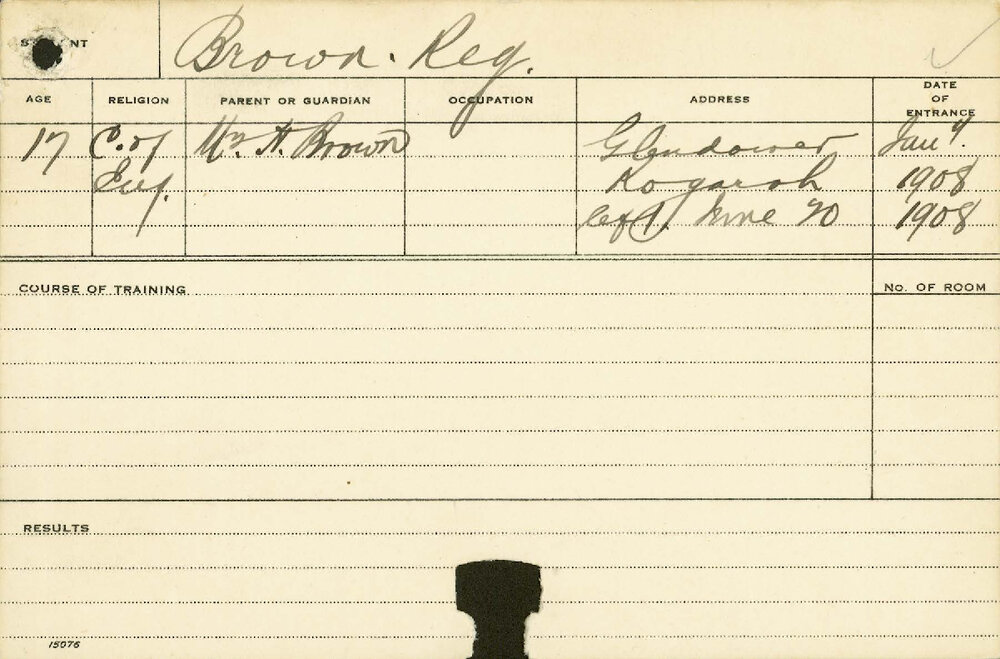 STUDENT
Brown. Reg.
AGE RELIGION PARENT OR GUARDIAN OCCUPATION ADDRESS DATE OF ENTRANCE
17 C. of H. Brown Glendower Jan
Eng. Kogarah 1908
left June 20 1908
COURSE OF TRAINING No. OF ROOM
RESULTS
15076